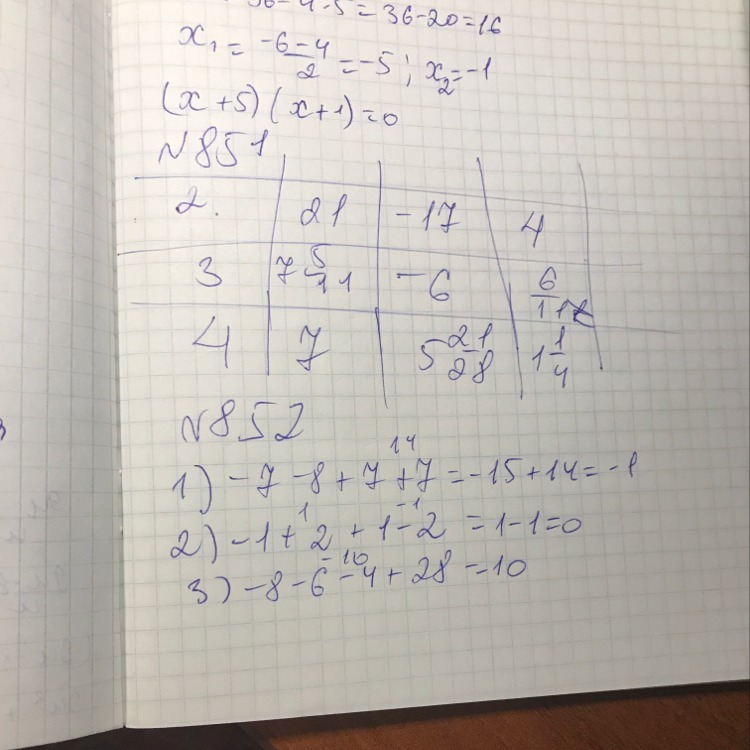 36-4·5=36-20=16
x₁= -6-4/2 =-5; x₂=-1
(x+5)(x+1)=0
N851
2. 21 -17 4
3 7 5/11 -6 6/11
4 7 5 21/28 1 1/4
N852
14
1) -7-8+7+7=-15+14=-1
1 -1
2) -1+2+1-2=1-1=0
-10
3) -8-6-4+28=10